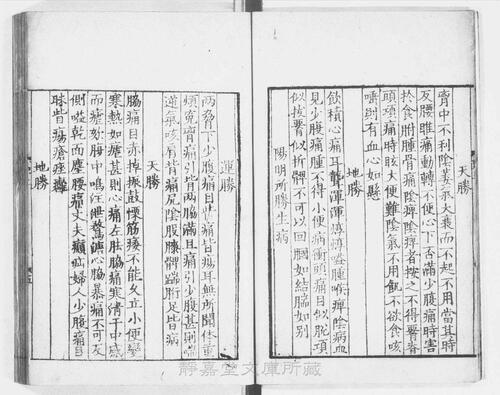 天勝
胷中不利陰萎氣大衰而不起不用當其時
反腰脽痛動轉不便心下否滿少腹痛時害
扵食胕腫骨痛陰痺陰痺者按之不得腰脊
頭項痛時眩大便難陰氣不用飢不欲食咳
唾則有血心如懸
地勝
飲積心痛耳聾渾渾焞焞嗌腫喉痺陰病血
見少腹痛腫不得小便病衝頭痛目似脫項
似拔腰似折髀不可以回膕如結腨如別
陽明所勝生病
運勝
兩脅下少腹痛目赤痛眥瘍耳無所聞体重
煩寃胷痛引背兩脇滿且痛引少腹甚則喘
逆氣咳肩背痛尻陰股膝髀腨胻足皆病
天勝
脇痛目赤掉振鼓慄筋痿不能久立小便變
寒熱如瘧甚則心痛左胠脇痛寒清于中感
而瘧欬腹中鳴注泄鶩溏心脇暴痛不可反
側嗌乾而塵腰痛丈夫㿗疝婦人少腹痛目
眛眥瘍瘡痤癰
地勝
静嘉堂文庫所藏